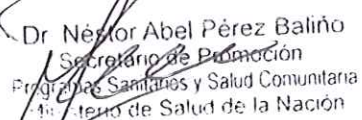 Dr Néstor Abel Pérez Baliño
Secretario de Promoción
Programas Sanitarios y Salud Comunitaria
Ministerio de Salud de la Nación